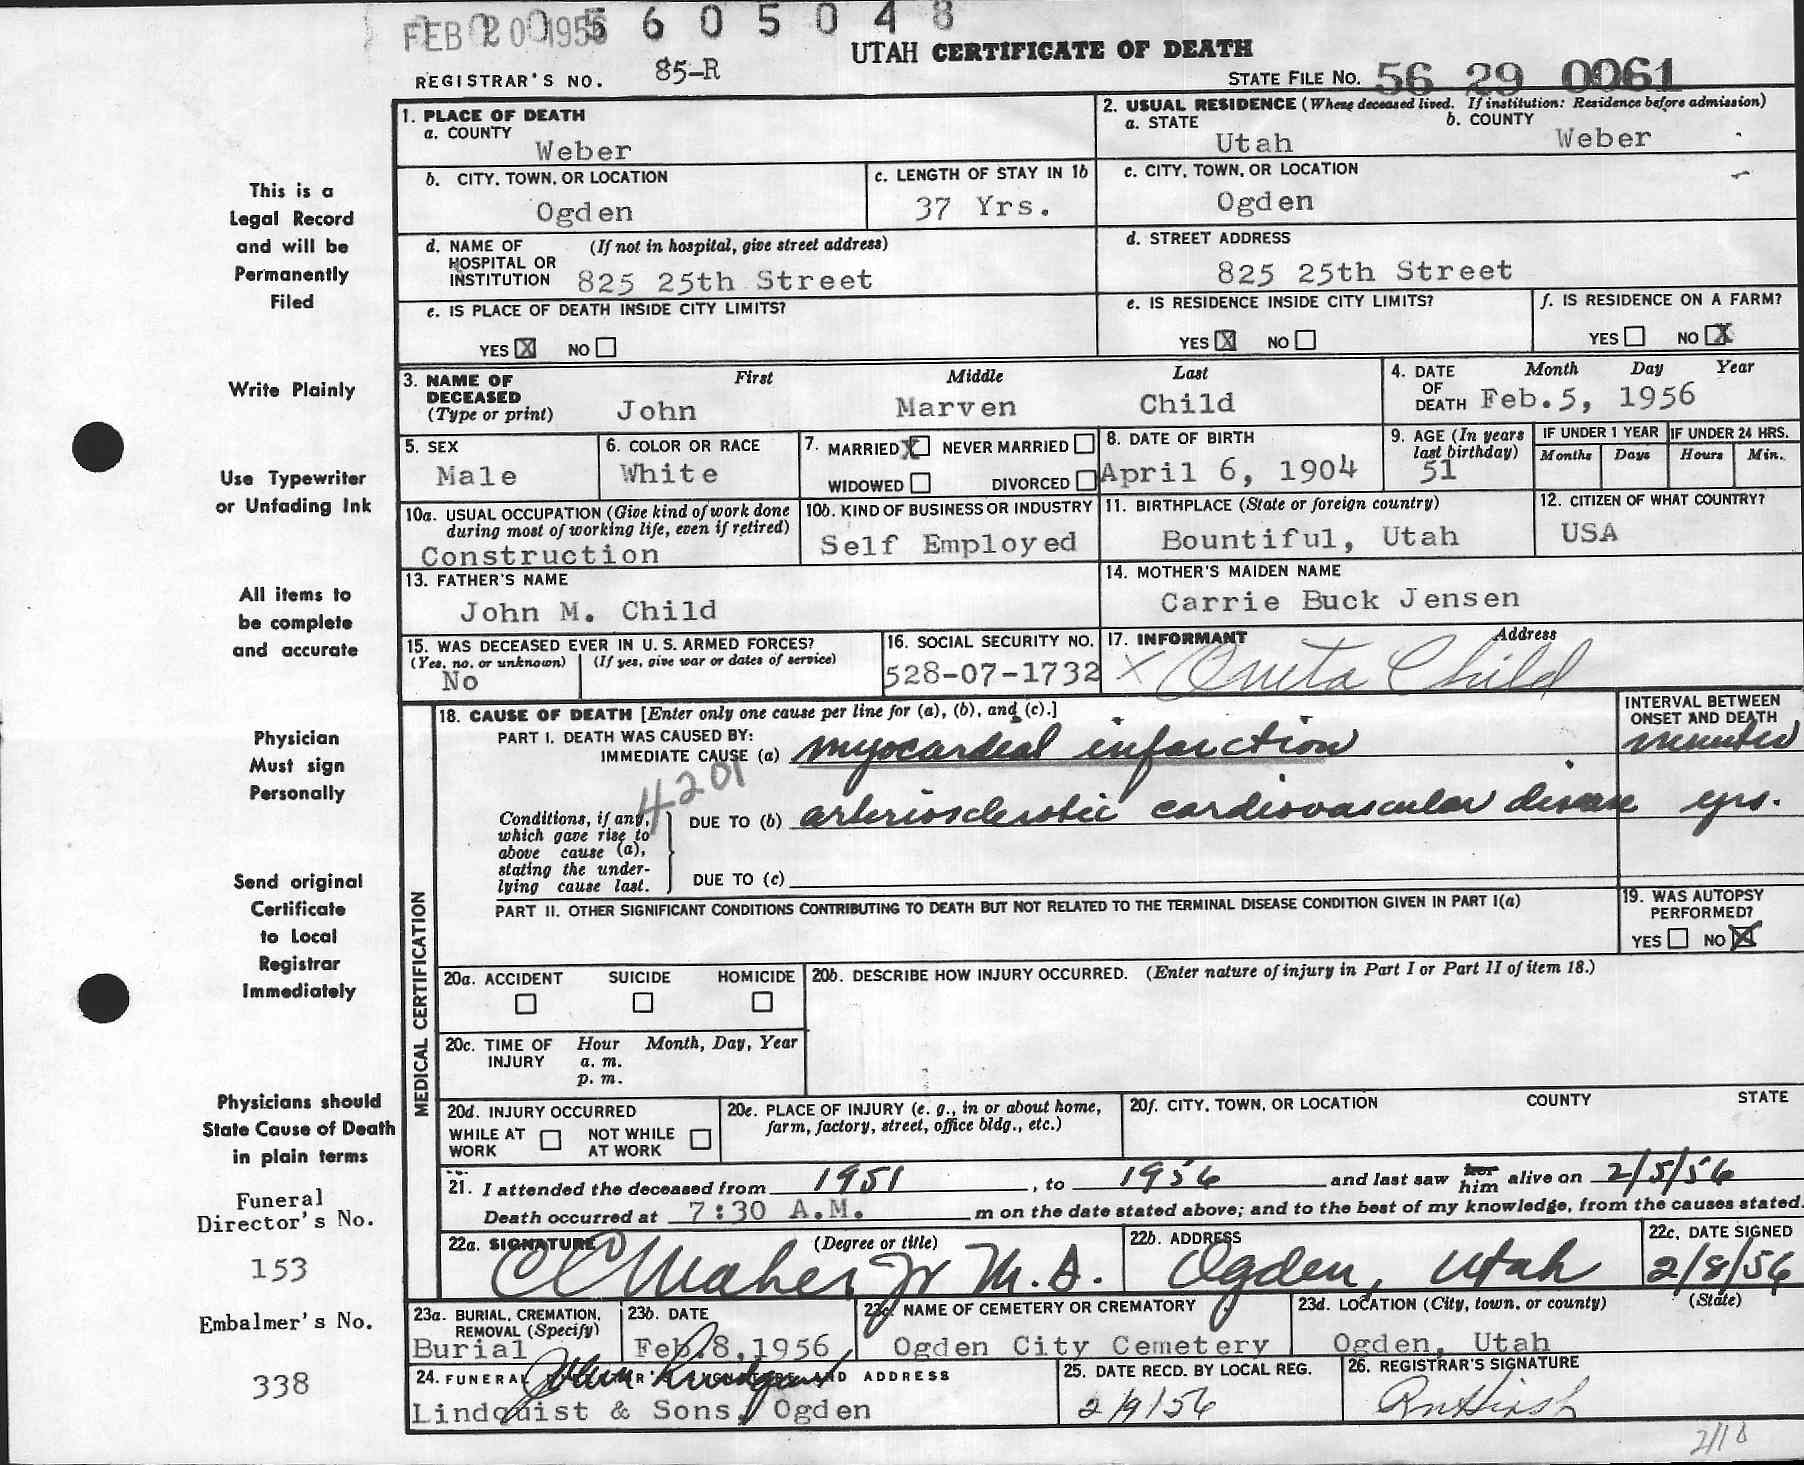 FEB 20 1956 5605048
UTAH CERTIFICATE OF DEATH
REGISTRAR'S NO. 85-R
STATE FILE NO. 56 29 0061
This is a
Legal Record
and will be
Permanently
Filed
Write Plainly
Use Typewriter
or Unfading Ink
All items to
be complete
and accurate
Physician
Must sign
Personally
Send original
Certificate
to Local
Registrar
Immediately
Physicians should
State Cause of Death
in plain terms
Funeral
Director's No.
153
Embalmer's No.
338
1. PLACE OF DEATH
a. COUNTY
Weber
2. USUAL RESIDENCE (Where deceased lived. If institution: Residence before admission)
a. STATE b. COUNTY
Utah Weber
b. CITY, TOWN, OR LOCATION
Ogden
c. LENGTH OF STAY IN 1b
37 Yrs.
c. CITY, TOWN, OR LOCATION
Ogden
d. NAME OF (If not in hospital, give street address)
HOSPITAL OR
INSTITUTION 825 25th Street
d. STREET ADDRESS
825 25th Street
e. IS PLACE OF DEATH INSIDE CITY LIMITS?
YES X NO
e. IS RESIDENCE INSIDE CITY LIMITS?
YES X NO
f. IS RESIDENCE ON A FARM?
YES NO X
3. NAME OF First Middle Last
DECEASED
(Type or print) John Marven Child
4. DATE Month Day Year
OF
DEATH Feb.5, 1956
5. SEX
Male
6. COLOR OR RACE
White
7. MARRIED X NEVER MARRIED
WIDOWED DIVORCED
8. DATE OF BIRTH
April 6, 1904
9. AGE (In years
last birthday)
51
IF UNDER 1 YEAR
Months Days
IF UNDER 24 HRS.
Hours Min.
10a. USUAL OCCUPATION (Give kind of work done
during most of working life, even if retired)
Construction
10b. KIND OF BUSINESS OR INDUSTRY
Self Employed
11. BIRTHPLACE (State or foreign country)
Bountiful, Utah
12. CITIZEN OF WHAT COUNTRY?
USA
13. FATHER'S NAME
John M. Child
14. MOTHER'S MAIDEN NAME
Carrie Buck Jensen
15. WAS DECEASED EVER IN U. S. ARMED FORCES?
(Yes, no, or unknown) (If yes, give war or dates of service)
No
16. SOCIAL SECURITY NO.
528-07-1732
17. INFORMANT Address
X Oneta Child
MEDICAL CERTIFICATION
18. CAUSE OF DEATH [Enter only one cause per line for (a), (b), and (c).]
PART I. DEATH WAS CAUSED BY:
IMMEDIATE CAUSE (a) myocardial infarction
INTERVAL BETWEEN
ONSET AND DEATH
minutes
4201
Conditions, if any,
which gave rise to
above cause (a),
stating the under-
lying cause last.
DUE TO (b) arteriosclerotic cardiovascular disease yrs.
DUE TO (c)
PART II. OTHER SIGNIFICANT CONDITIONS CONTRIBUTING TO DEATH BUT NOT RELATED TO THE TERMINAL DISEASE CONDITION GIVEN IN PART I(a)
19. WAS AUTOPSY
PERFORMED?
YES NO X
20a. ACCIDENT SUICIDE HOMICIDE
20b. DESCRIBE HOW INJURY OCCURRED. (Enter nature of injury in Part I or Part II of item 18.)
20c. TIME OF Hour Month, Day, Year
INJURY a. m.
p. m.
20d. INJURY OCCURRED
WHILE AT NOT WHILE
WORK AT WORK
20e. PLACE OF INJURY (e. g., in or about home,
farm, factory, street, office bldg., etc.)
20f. CITY, TOWN, OR LOCATION COUNTY STATE
21. I attended the deceased from 1951, to 1956 and last saw her him alive on 2/5/56
Death occurred at 7:30 A.M. m on the date stated above; and to the best of my knowledge, from the causes stated.
22a. SIGNATURE (Degree or title)
CC Maher Jr M.D.
22b. ADDRESS
Ogden, Utah
22c. DATE SIGNED
2/8/56
23a. BURIAL, CREMATION,
REMOVAL (Specify)
Burial
23b. DATE
Feb.8,1956
23c. NAME OF CEMETERY OR CREMATORY
Ogden City Cemetery
23d. LOCATION (City, town, or county) (State)
Ogden, Utah
24. FUNERAL DIRECTOR'S SIGNATURE AND ADDRESS
Lindquist & Sons, Ogden
25. DATE RECD. BY LOCAL REG.
2/9/56
26. REGISTRAR'S SIGNATURE
2/10